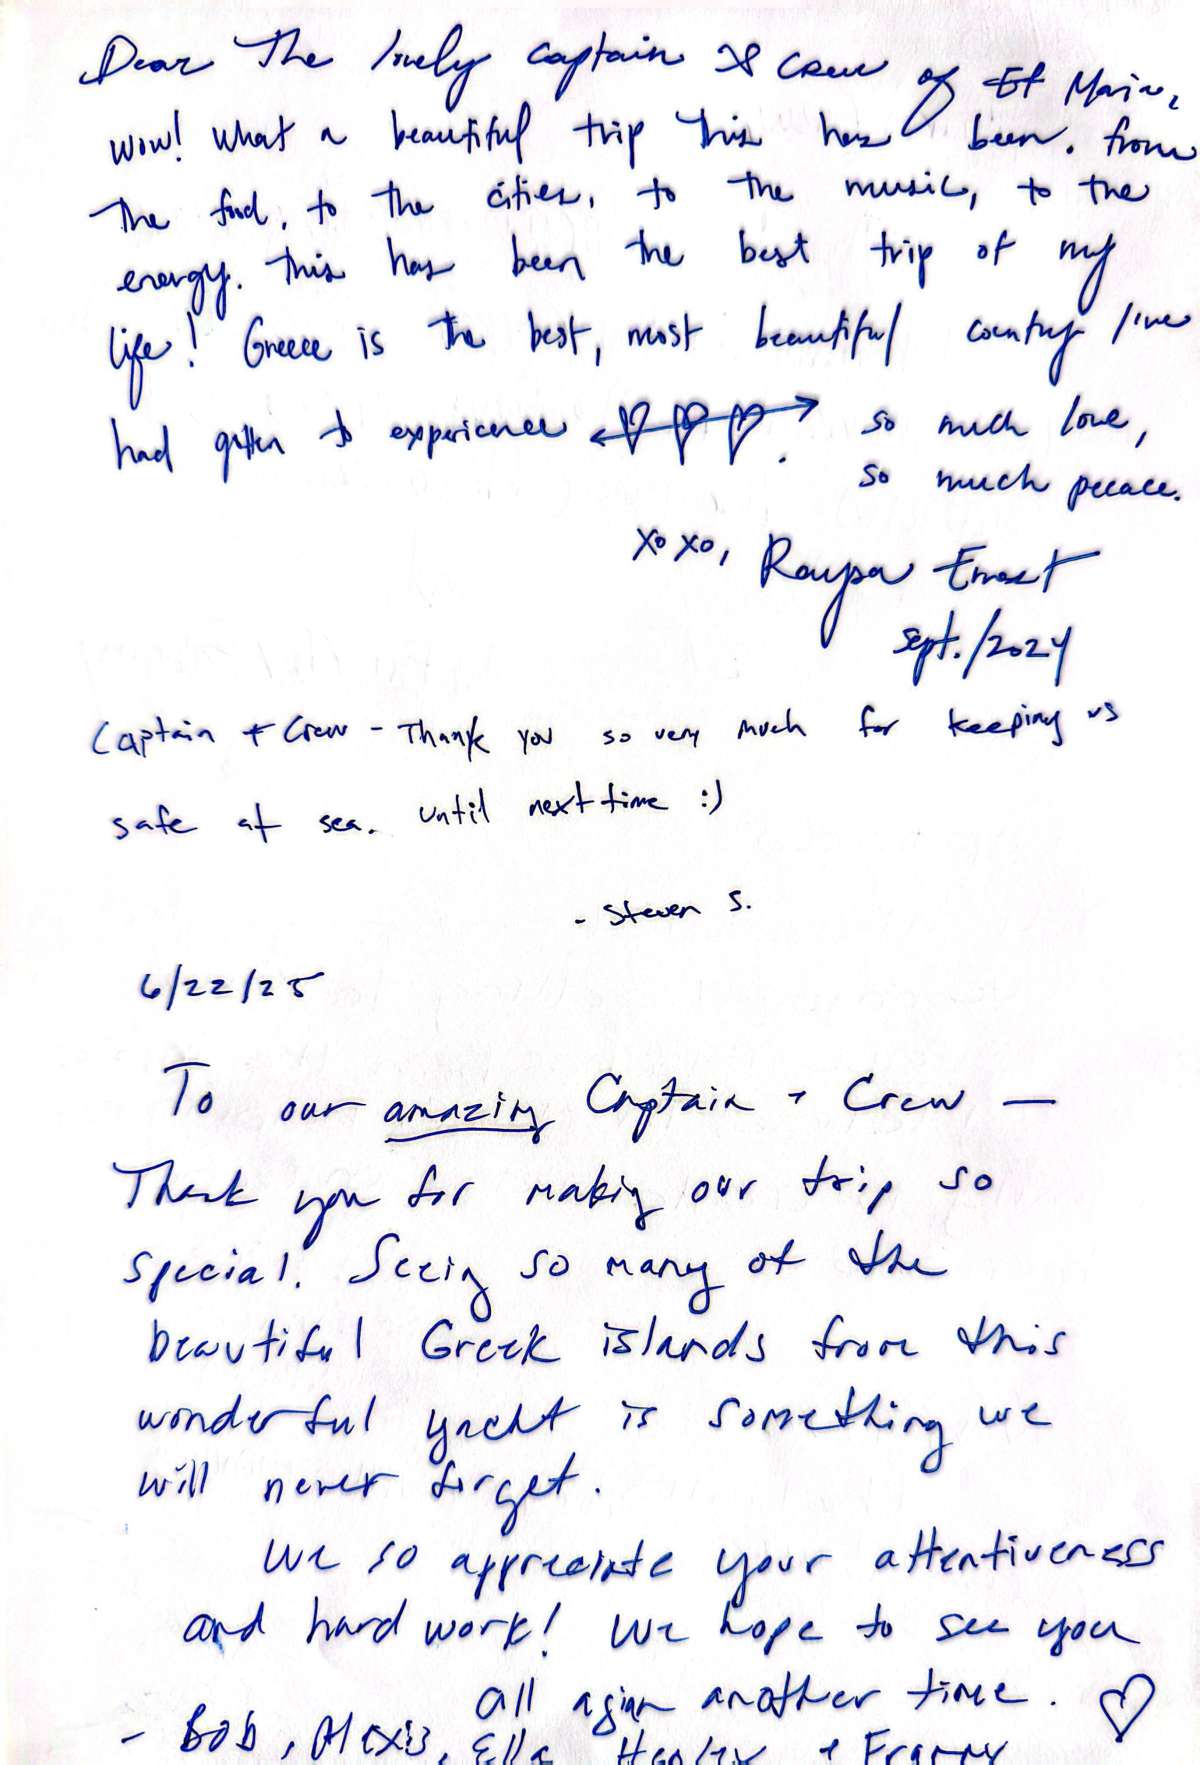 Dear The lovely captain & crew of Ef Marine,
wow! what a beautiful trip this has been. from
the food, to the cities, to the music, to the
energy. this has been the best trip of my
life! Greece is the best, most beautiful country I've
had gotten to experience so much love,
so much peace.
xoxo, Raysa Ernest
sept./2024
Captain + Crew - Thank you so very much for keeping us
safe at sea. until next time :)
- Steven S.
6/22/25
To our amazing Captain + Crew —
Thank you for making our trip so
special. Seeing so many of the
beautiful Greek islands from this
wonderful yacht is something we
will never forget.
We so appreciate your attentiveness
and hard work! We hope to see you
all agian another time.
- Bob, Alexis, Ella, + Franny